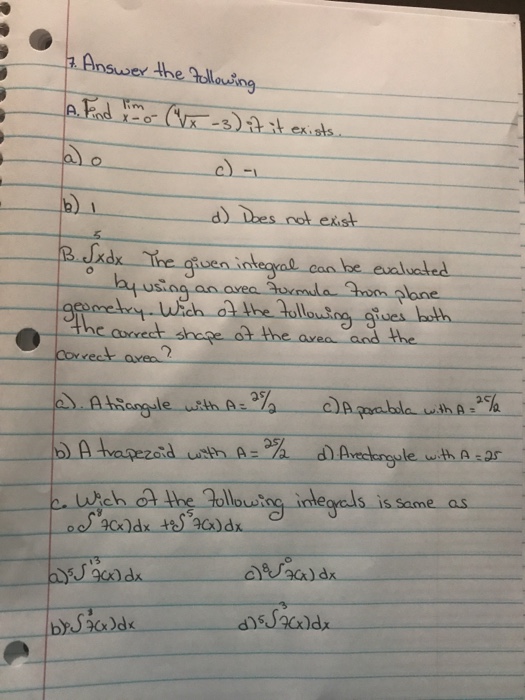 7. Answer the following
A. Find lim x→0⁻ (⁴√x -3) if it exists.
a) 0
c) -1
b) 1
d) Does not exist
B. ₀∫⁵xdx The given integral can be evaluated
by using an area formula from plane
geometry. Wich of the following gives both
the correct shape of the area and the
correct area?
a). A triangule with A = 25/2
c) A parabola with A = 25/2
b) A trapezoid with A = 25/2
d) A rectangule with A = 25
c. Wich of the following integrals is same as
₀∫⁸ f(x)dx + ₈∫⁵ f(x)dx
a) ₅∫¹³ f(x)dx
c) ₈∫⁰ f(x)dx
∫ f(x)dx
d) ₅∫³ f(x)dx